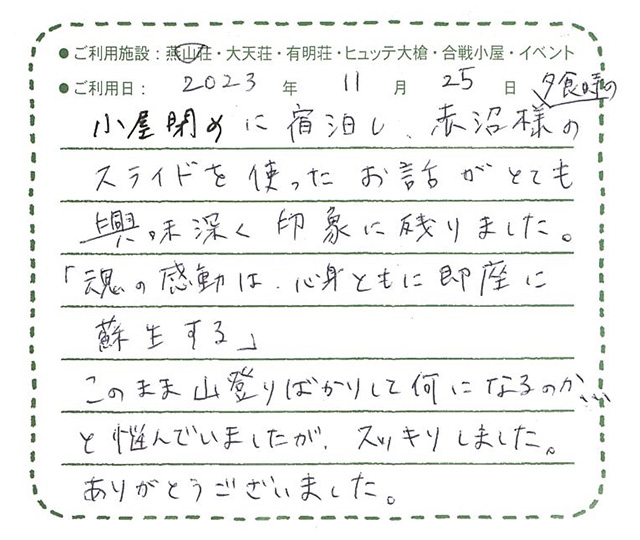 ●ご利用施設：燕山荘・大天荘・有明荘・ヒュッテ大槍・合戦小屋・イベント
●ご利用日： 2023 年 11 月 25 日 夕食時の
小屋閉めに宿泊し、赤沼様の
スライドを使ったお話がとても
興味深く印象に残りました。
「魂の感動は、心身ともに即座に
蘇生する」
このまま山登りばかりして何になるのか…
と悩んでいましたが、スッキリしました。
ありがとうございました。